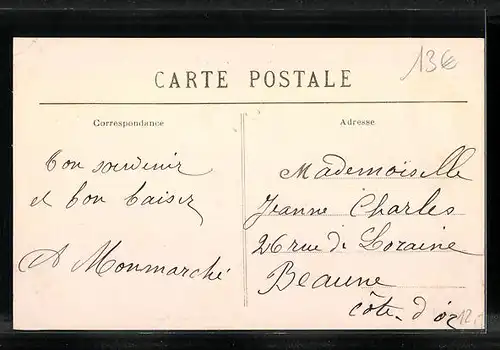 13€
CARTE POSTALE
Correspondance
Adresse
Bon souvenir
et bon baiser
A Monmarché
Mademoiselle
Jeanne Charles
26 rue de Loraine
Beaune
Côte-d'or
12.-